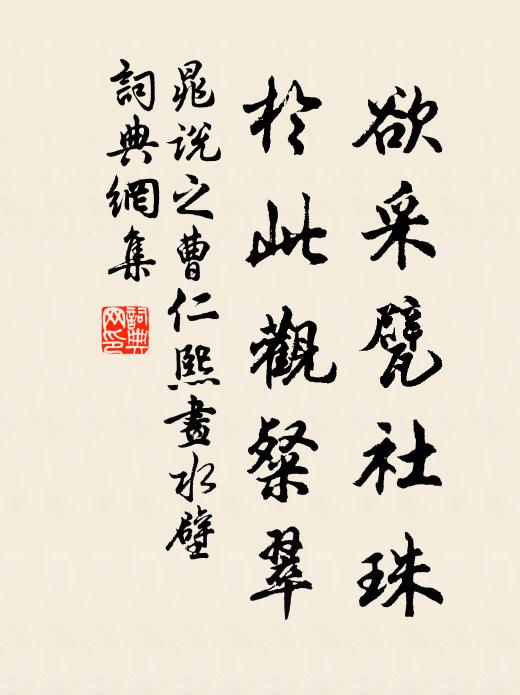 欲采甓社珠
於此觀粲翠
晁說之曹仁熙畫水壁
詞典網集
詞典网印